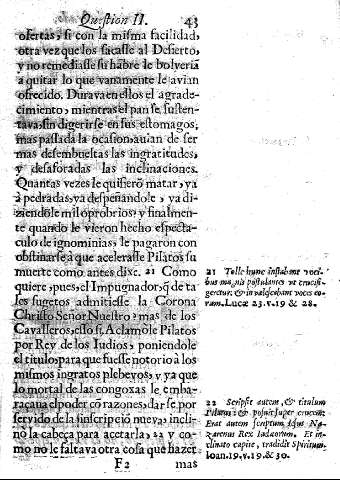 Question II. 43
ofertas, si con la misma facilidad,
otra vez que los sacasse al Desierto,
y no remediasse su hābre le bolveriā
a quitar lo que vanamente le avian
ofrecido. Durava en ellos el agrade-
cimiento, mientras el pan se susten-
tava, sin digerirse en sus estomagos;
mas passada la ocasion, avian de ser
mas desembueltas las ingratitudes,
y desaforadas las inclinaciones.
Quantas vezes le quisierō matar, ya
à pedradas, ya despeñandole, ya di-
ziendole mil oprobrios; y finalmen-
te quando le vieron hecho especta-
culo de ignominias, le pagaron con
obstinarse à que acelerasse Pilatos su
muerte como antes dixe. 21 Como
quiere, pues, el Impugnador, q̄ de ta
les sugetos admitiesse la Corona
Christo Señor Nuestro? mas de los
Cavalleros, esso si. Aclamòle Pilatos
por Rey de los Iudios, poniendole
el titulo, para que fuesse notorio à los
mismos ingratos plebeyos; y ya que
lo mortal de las congoxas le emba-
raçava el poder cō razones, dar se por
servido de la inscripciō nueva; incli-
nò la cabeça para acetarla, 22 y co-
mo no le faltava otra cosa que hazer
F2 mas
21 Tolle hunc instabant voci-
bus magnis postulantes ut crucifi-
geretur: & invalescebant voces eo-
rum. Lucæ 23. v. 19 & 28.
22 Scripsit autem, & titulum
Pilatus: & posuit super crucem:
Erat autem scriptum, Iesus Na-
zarenus Rex Iudæorum. Et in-
clinato capite, tradidit Spiritum.
Ioan. 19. v. 19. & 30.